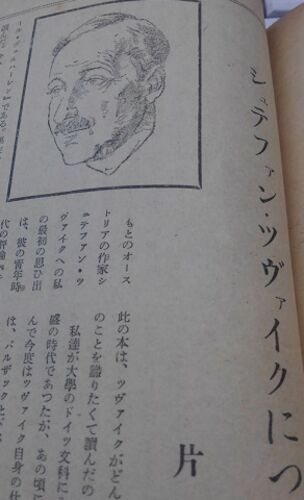 シュテファン・ツヴァイクにつ
片
もとのオース
トリアの作家シ
ュテファン・ツ
ヴァイクへの私
の最初の思ひ出
は、彼の青年時
代の評論
ル・ヴェルハーレン』である。
此の本は、ツヴァイクがどん
のことを識りたくて讀んだの
私達が大學のドイツ文科に
盛の時代であつたが、あの頃に
んで今度はツヴァイク自身の仕
は、バルザック